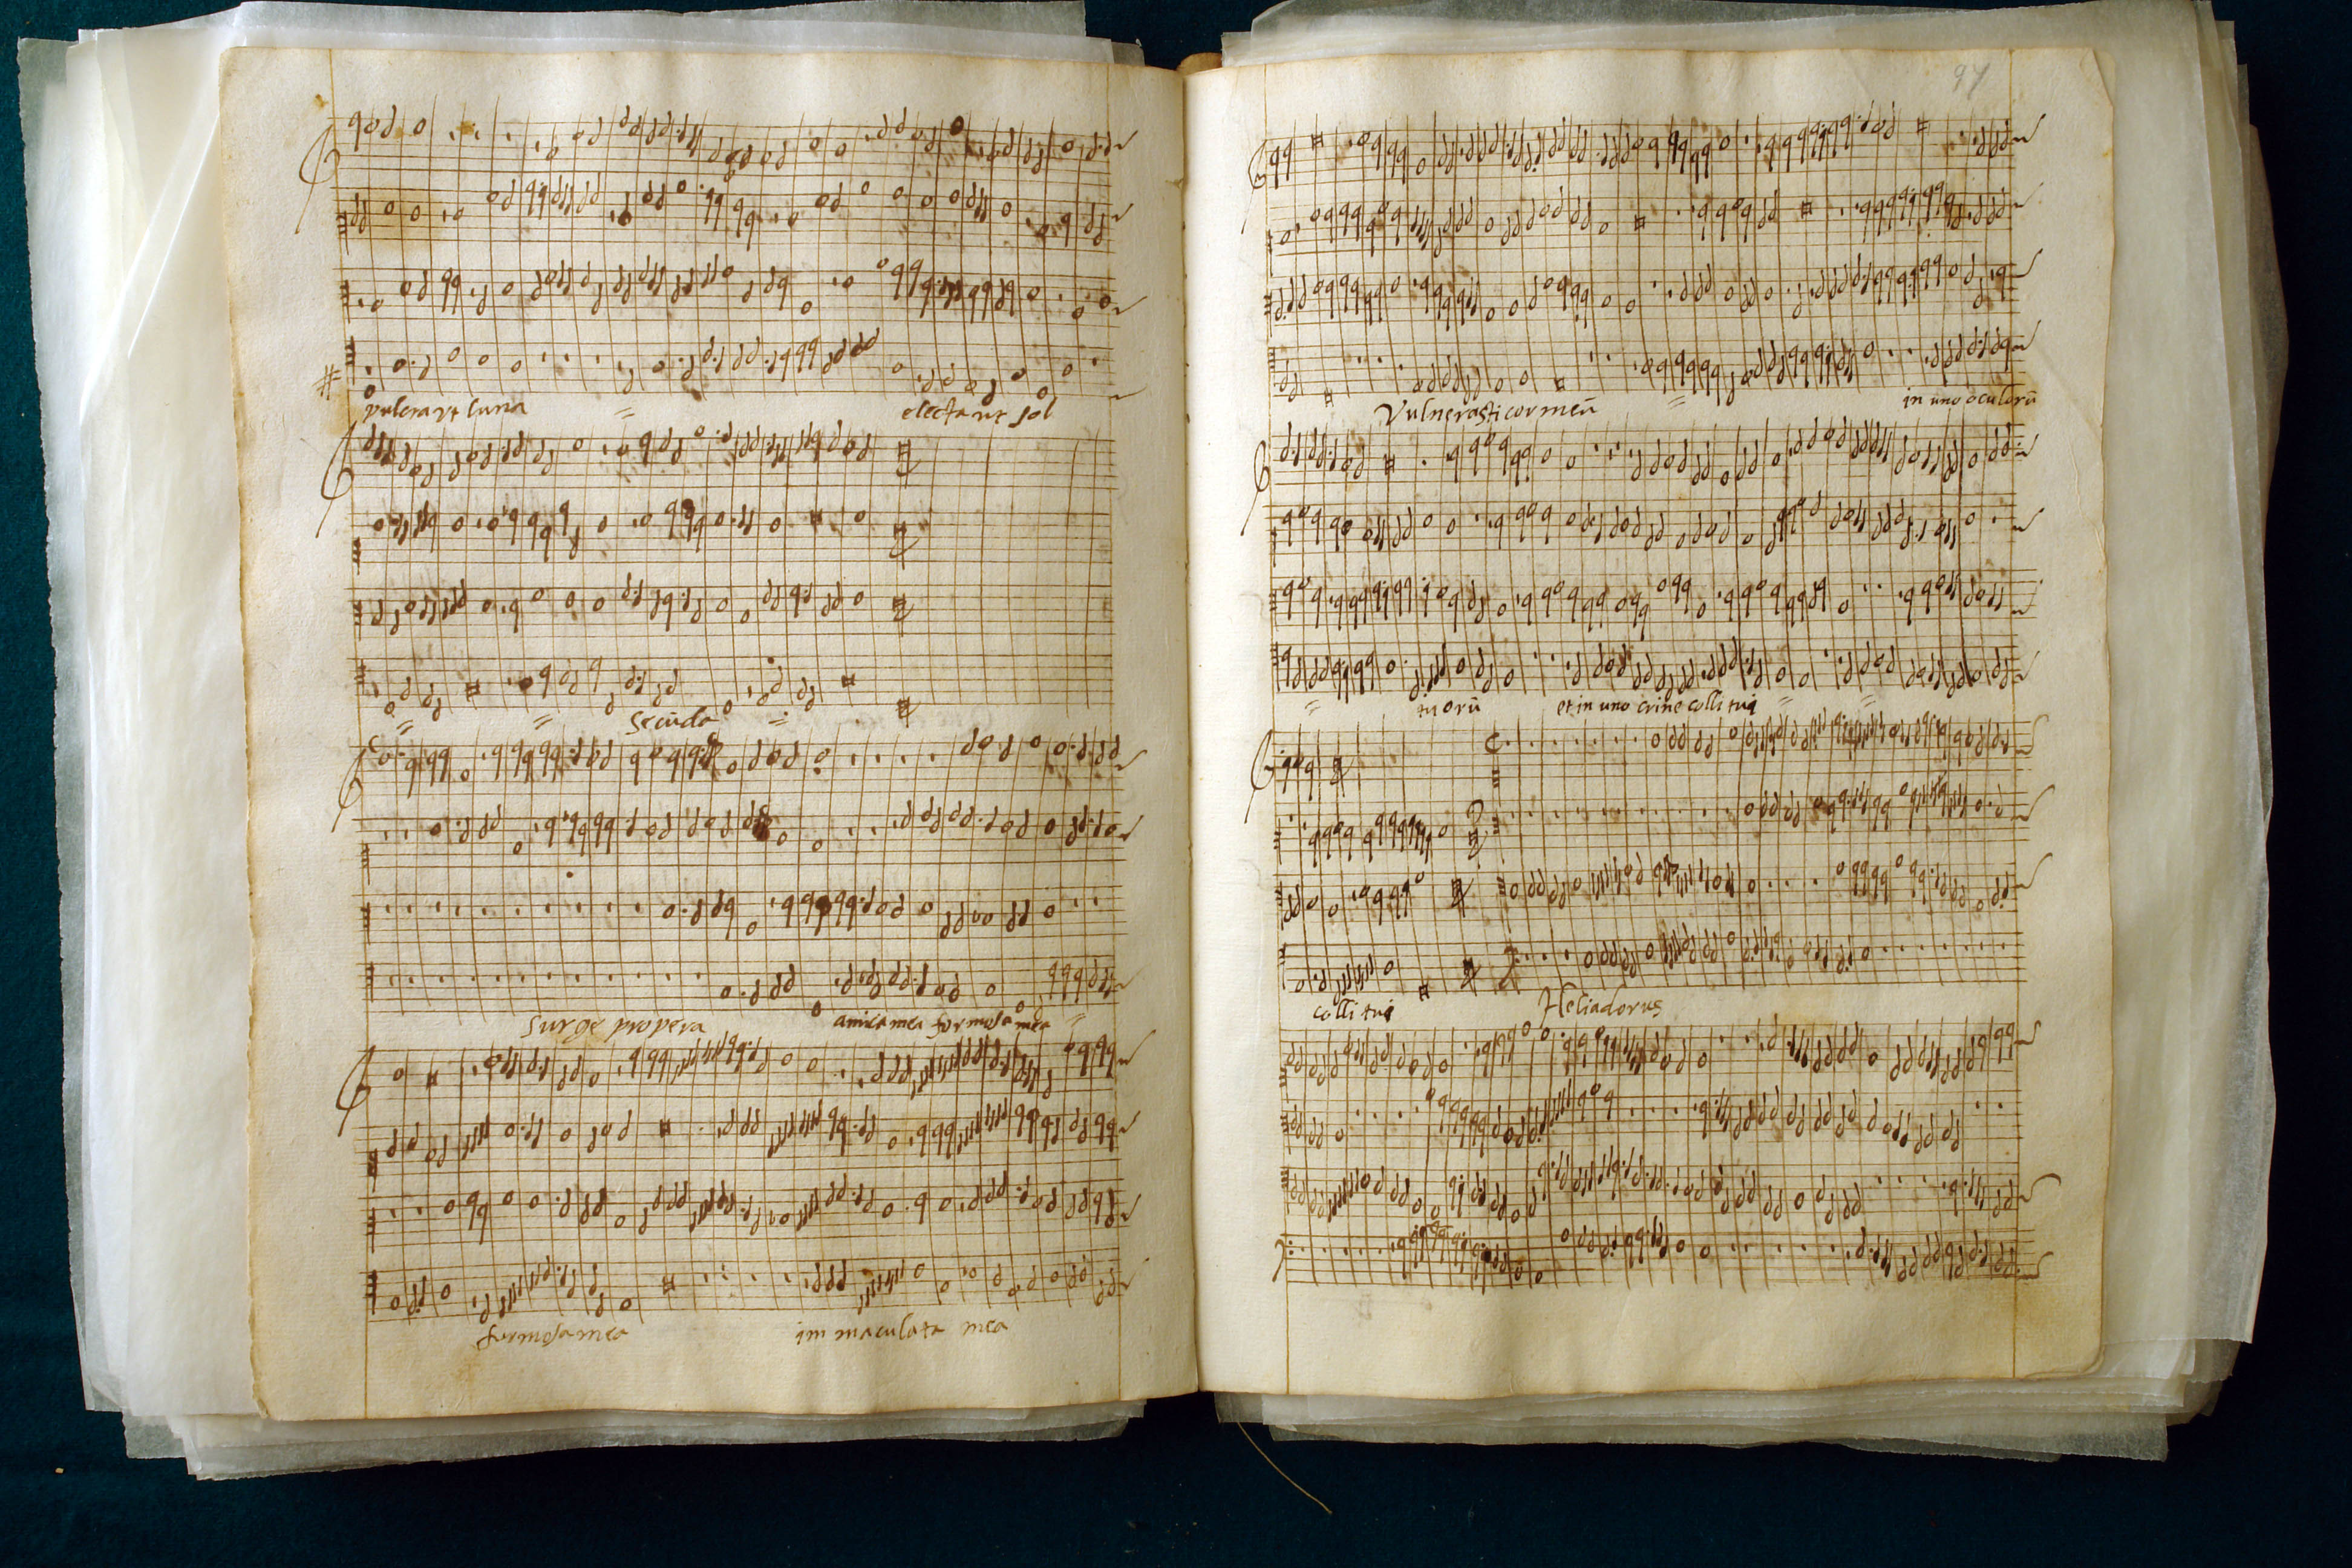 pulcra ut luna = electa ut sol
= = Secūda =
Surge propera amica mea formosa mea =
formosa mea immaculata mea
97
Vulnerasti cor meū = in uno oculorū
= tuorū et in uno crine colli tui = =
colli tui Heliadorus